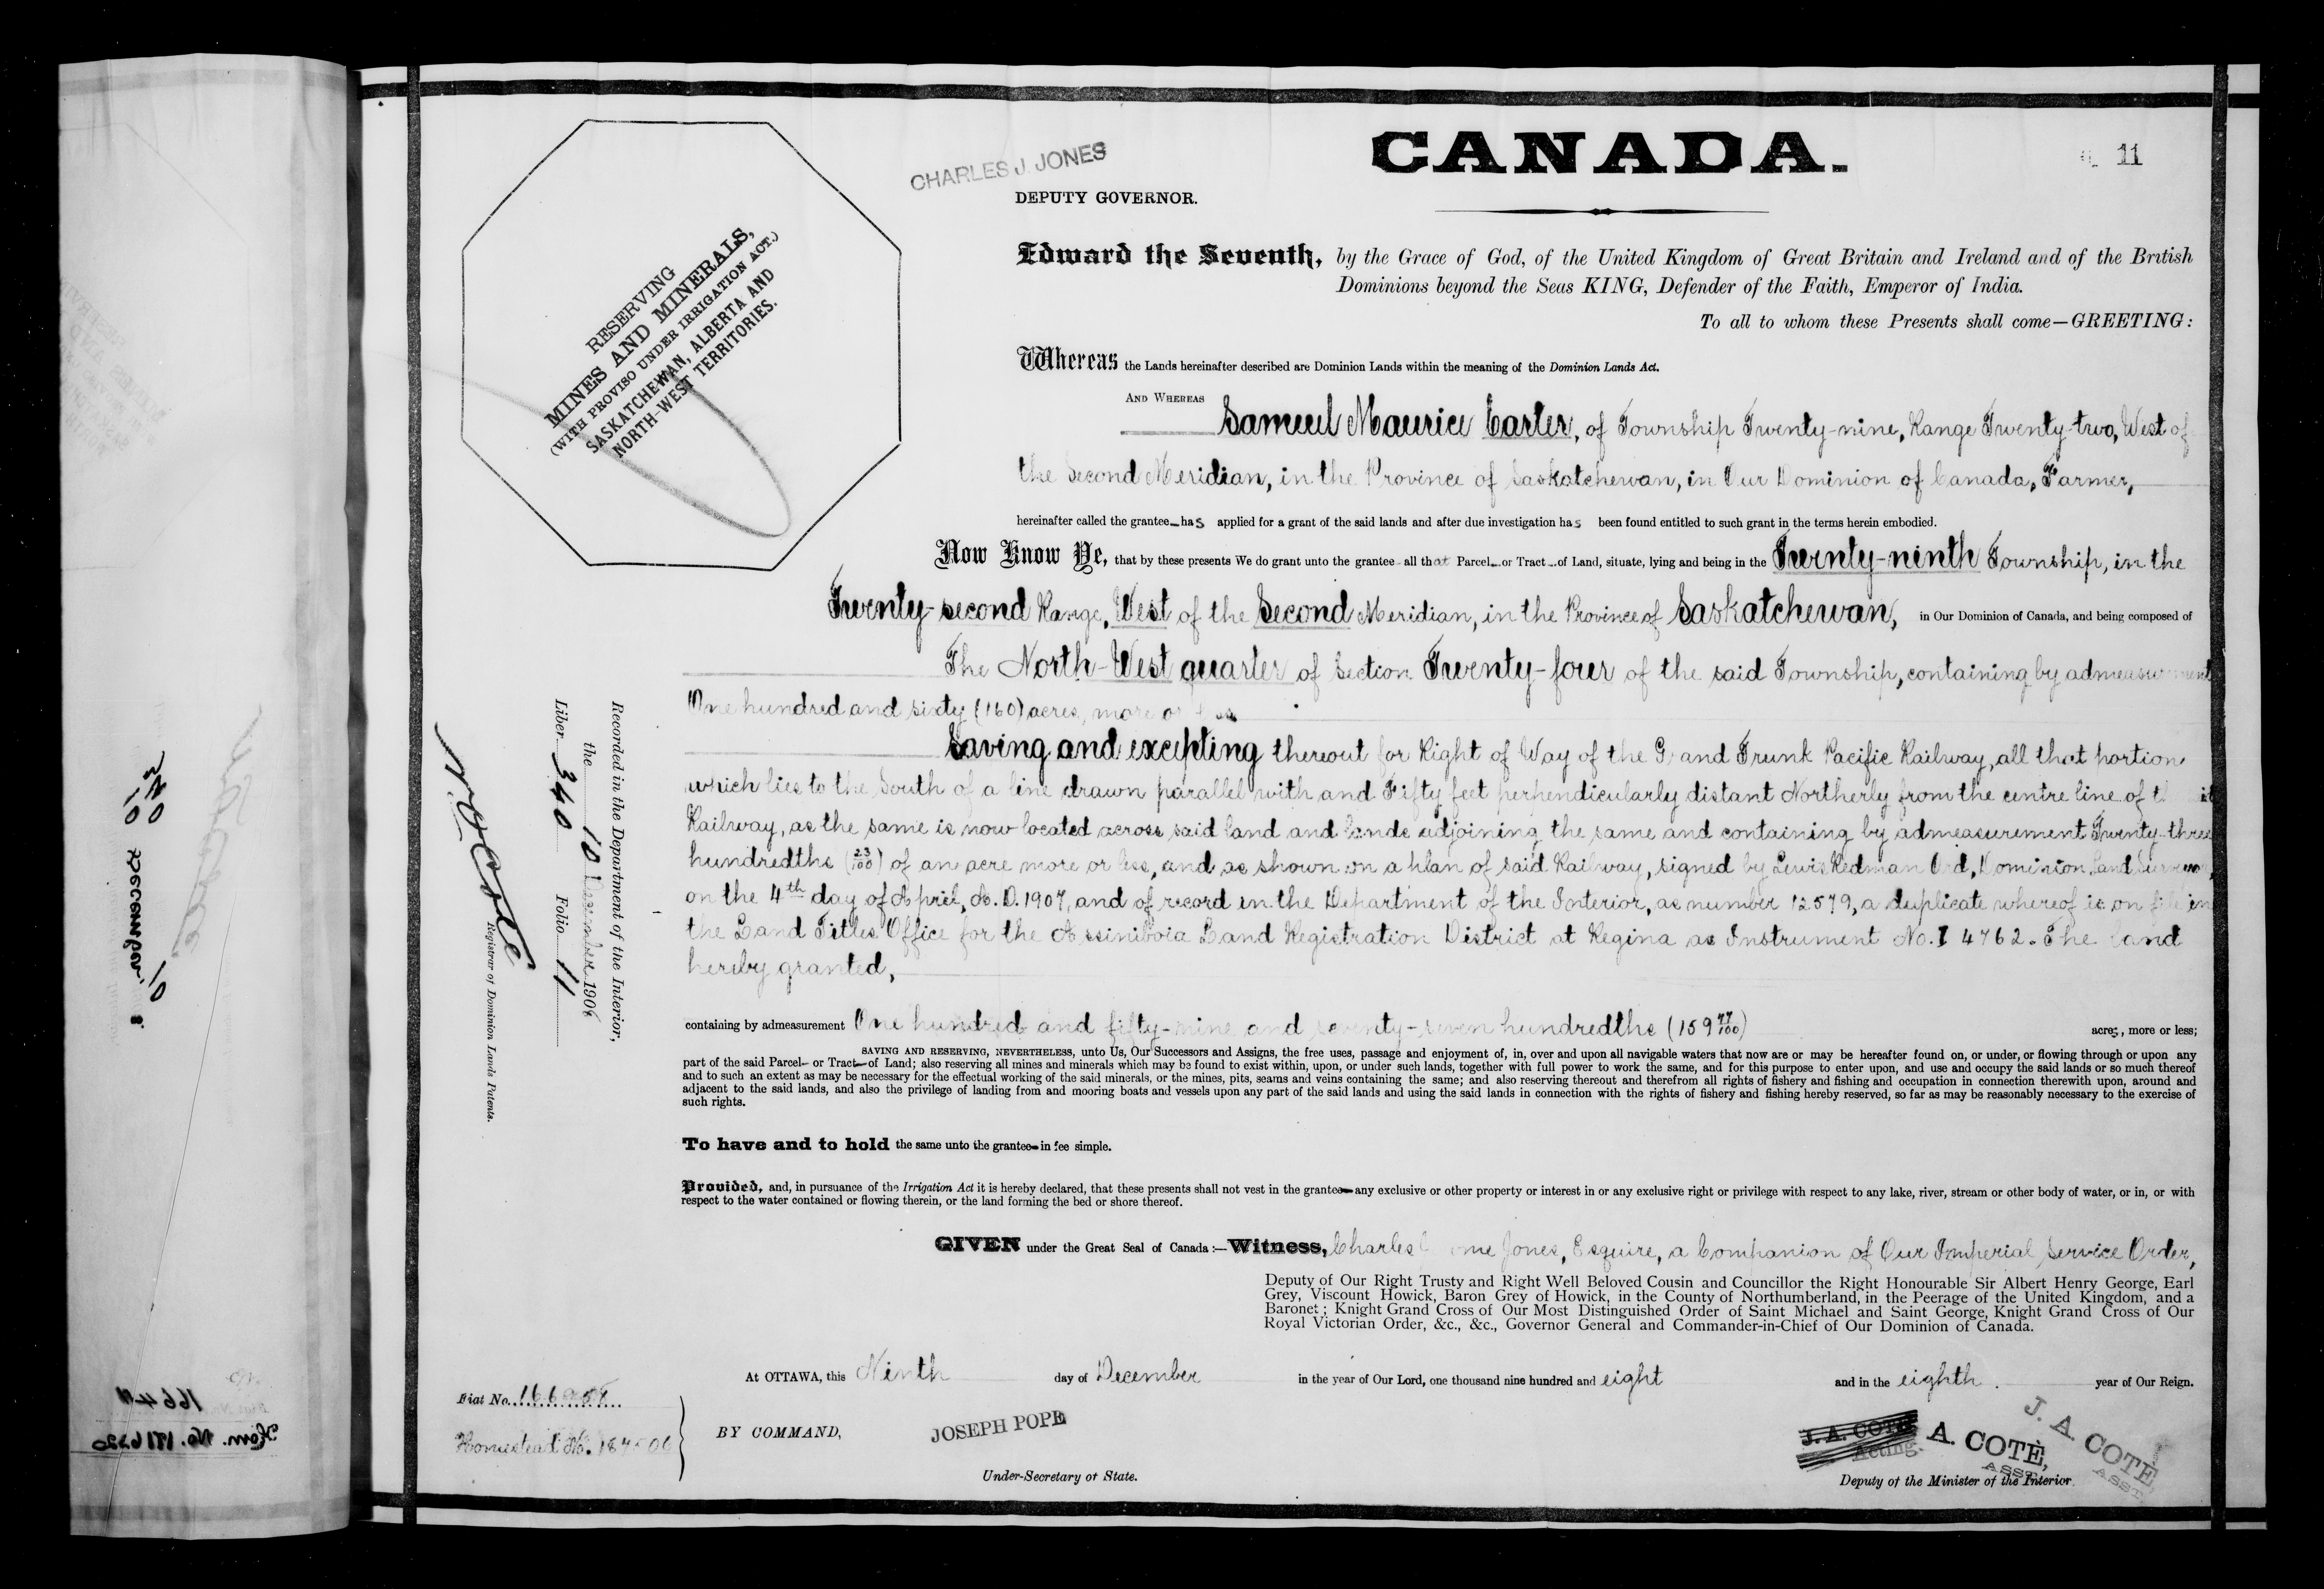 CANADA.
11
CHARLES J. JONES
DEPUTY GOVERNOR.
RESERVING
MINES AND MINERALS,
(WITH PROVISO UNDER IRRIGATION ACT.)
SASKATCHEWAN, ALBERTA AND
NORTH-WEST TERRITORIES.
Edward the Seventh, by the Grace of God, of the United Kingdom of Great Britain and Ireland and of the British
Dominions beyond the Seas KING, Defender of the Faith, Emperor of India.
To all to whom these Presents shall come—GREETING:
Whereas the Lands hereinafter described are Dominion Lands within the meaning of the Dominion Lands Act.
AND WHEREAS Samuel Maurice Carter, of Township Twenty-nine, Range Twenty-two, West of
the Second Meridian, in the Province of Saskatchewan, in Our Dominion of Canada, Farmer,
hereinafter called the grantee has applied for a grant of the said lands and after due investigation has been found entitled to such grant in the terms herein embodied.
Now Know Ye, that by these presents We do grant unto the grantee all that Parcel or Tract of Land, situate, lying and being in the Twenty-ninth Township, in the
Twenty-second Range, West of the Second Meridian, in the Province of Saskatchewan, in Our Dominion of Canada, and being composed of
The North-West quarter of Section Twenty-four of the said Township, containing by admeasurement
One hundred and sixty (160) acres, more or less
Saving and excepting thereout for Right of Way of the Grand Trunk Pacific Railway, all that portion
which lies to the South of a line drawn parallel with and Fifty feet perpendicularly distant Northerly from the centre line of
Railway, as the same is now located across said land and lands adjoining the same and containing by admeasurement Twenty-three
hundredths (23/100) of an acre more or less, and as shown on a plan of said Railway, signed by Lewis Redman Ord, Dominion Land Surveyor,
on the 4th day of April, A.D. 1907, and of record in the Department of the Interior, as number 12579, a duplicate whereof is on file in
the Land Titles Office for the Assiniboia Land Registration District at Regina as Instrument No. I 4762. The land
hereby granted,
containing by admeasurement One hundred and fifty-nine and seventy-seven hundredths (159 77/100) acres, more or less;
SAVING AND RESERVING, NEVERTHELESS, unto Us, Our Successors and Assigns, the free uses, passage and enjoyment of, in, over and upon all navigable waters that now are or may be hereafter found on, or under, or flowing through or upon any
part of the said Parcel or Tract of Land; also reserving all mines and minerals which may be found to exist within, upon, or under such lands, together with full power to work the same, and for this purpose to enter upon, and use and occupy the said lands or so much thereof
and to such an extent as may be necessary for the effectual working of the said minerals, or the mines, pits, seams and veins containing the same; and also reserving thereout and therefrom all rights of fishery and fishing and occupation in connection therewith upon, around and
adjacent to the said lands, and also the privilege of landing from and mooring boats and vessels upon any part of the said lands and using the said lands in connection with the rights of fishery and fishing hereby reserved, so far as may be reasonably necessary to the exercise of
such rights.
To have and to hold the same unto the grantee in fee simple.
Provided, and, in pursuance of the Irrigation Act it is hereby declared, that these presents shall not vest in the grantee any exclusive or other property or interest in or any exclusive right or privilege with respect to any lake, river, stream or other body of water, or in, or with
respect to the water contained or flowing therein, or the land forming the bed or shore thereof.
GIVEN under the Great Seal of Canada:—Witness, Charles Jones, Esquire, a Companion of Our Imperial Service Order,
Deputy of Our Right Trusty and Right Well Beloved Cousin and Councillor the Right Honourable Sir Albert Henry George, Earl
Grey, Viscount Howick, Baron Grey of Howick, in the County of Northumberland, in the Peerage of the United Kingdom, and a
Baronet; Knight Grand Cross of Our Most Distinguished Order of Saint Michael and Saint George, Knight Grand Cross of Our
Royal Victorian Order, &c., &c., Governor General and Commander-in-Chief of Our Dominion of Canada.
At OTTAWA, this Ninth day of December in the year of Our Lord, one thousand nine hundred and eight and in the eighth year of Our Reign.
Fiat No.
Homestead No.
BY COMMAND,
JOSEPH POPE
Under-Secretary of State.
J. A. COTÉ
Acting.
A. COTÈ,
ASST.
J. A. COTÉ
ASST.
Deputy of the Minister of the Interior
Recorded in the Department of the Interior,
the 10 December 1908
Liber 340 Folio 11
N. O. Coté
Registrar of Dominion Lands Patents.
340
10 December 8
16640
Hom. No. 191620